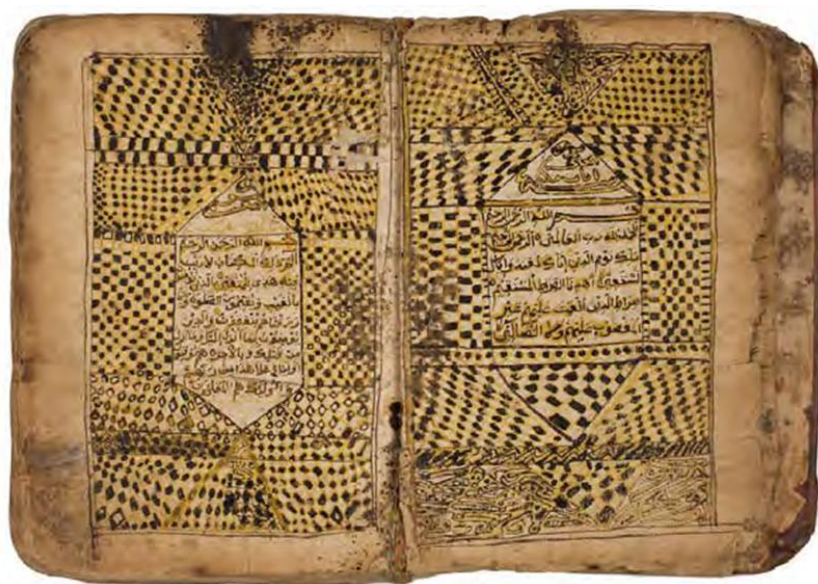 بسم الله الرحمن الرحيم
الحمد لله رب العالمين الرحمن الرحيم
ملك يوم الدين اياك نعبد واياك
نستعين اهدنا الصراط المستقيم
صراط الذين انعمت عليهم غير
المغضوب عليهم ولا الضالين
بسم الله الرحمن الرحيم
الم ذلك الكتاب لا ريب
فيه هدى للمتقين الذين
بالغيب ويقيمون الصلوة
رزقناهم ينفقون والذين
يؤمنون بما انزل اليك وما انزل
من قبلك وبالاخرة هم يوقنون
اولئك على هدى من ربهم
واولئك هم المفلحون